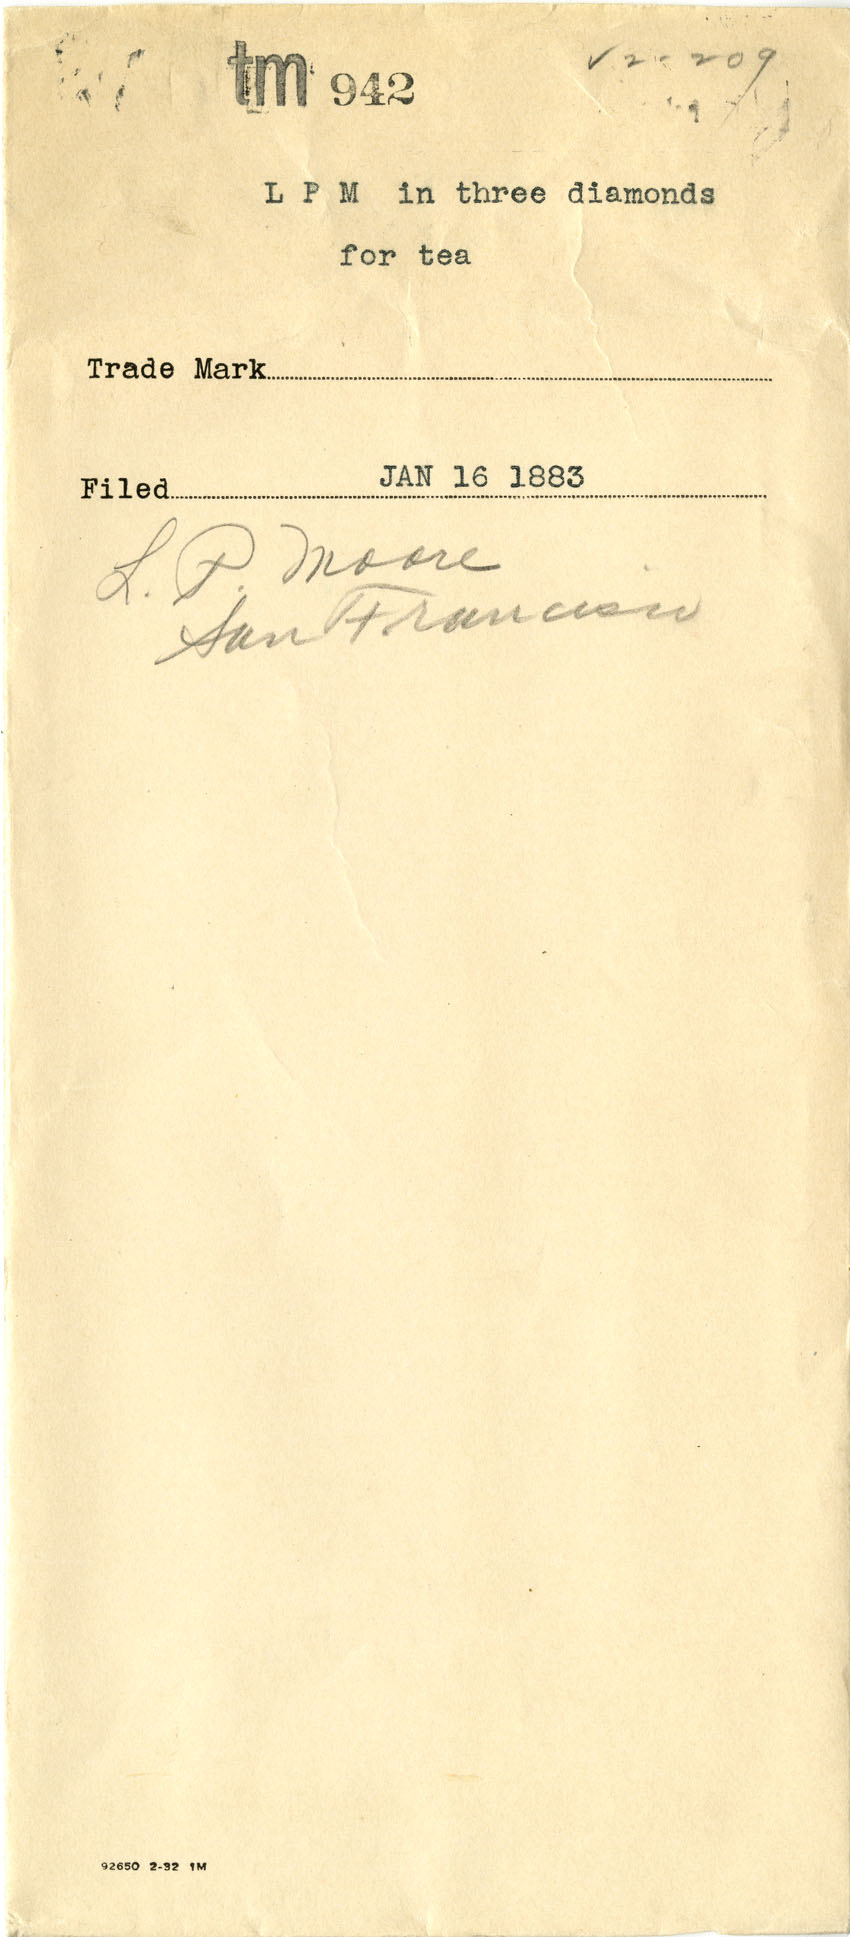 tm 942
v2-209
L P M in three diamonds
for tea
Trade Mark
Filed JAN 16 1883
L. P. Moore
San Francisco
92650 2-32 1M